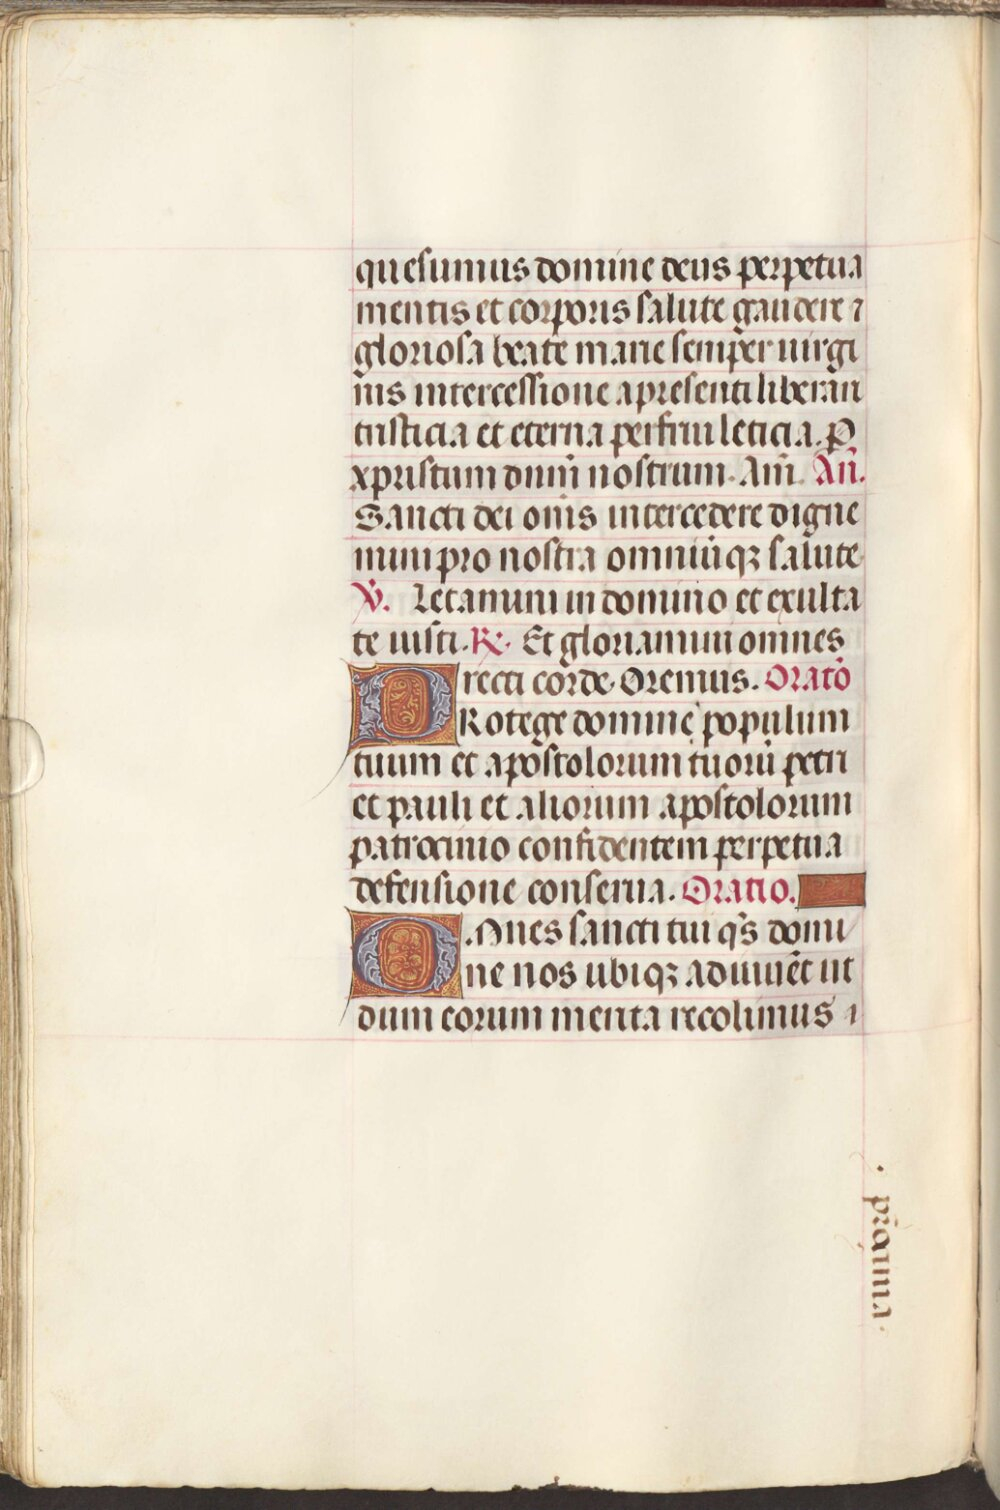 quesumus domine deus perpetua
mentis et corporis salute gaudere ⁊
gloriosa beate marie semper uirgi
nis intercessione a presenti liberari
tristicia et eterna perfrui leticia. P
xpristum dnm̄ nostrum. Am̄. Añ.
Sancti dei om̄s intercedere digne
mini pro nostra omniūqꝫ salute
V̄. Letamini in domino et exulta
te iusti. ℟. Et gloriamini omnes
recti corde. Oremus. Oratō
PRotege domine populum
tuum et apostolorum tuorū petri
et pauli et aliorum apostolorum
patrocinio confidentem perpetua
defensione conserua. Oratio.
O.Mnes sancti tui qs̄ domi
ne nos ubiqꝫ adiuuēt ut
dum eorum merita recolimus ⁊
. pr̄ocinia .